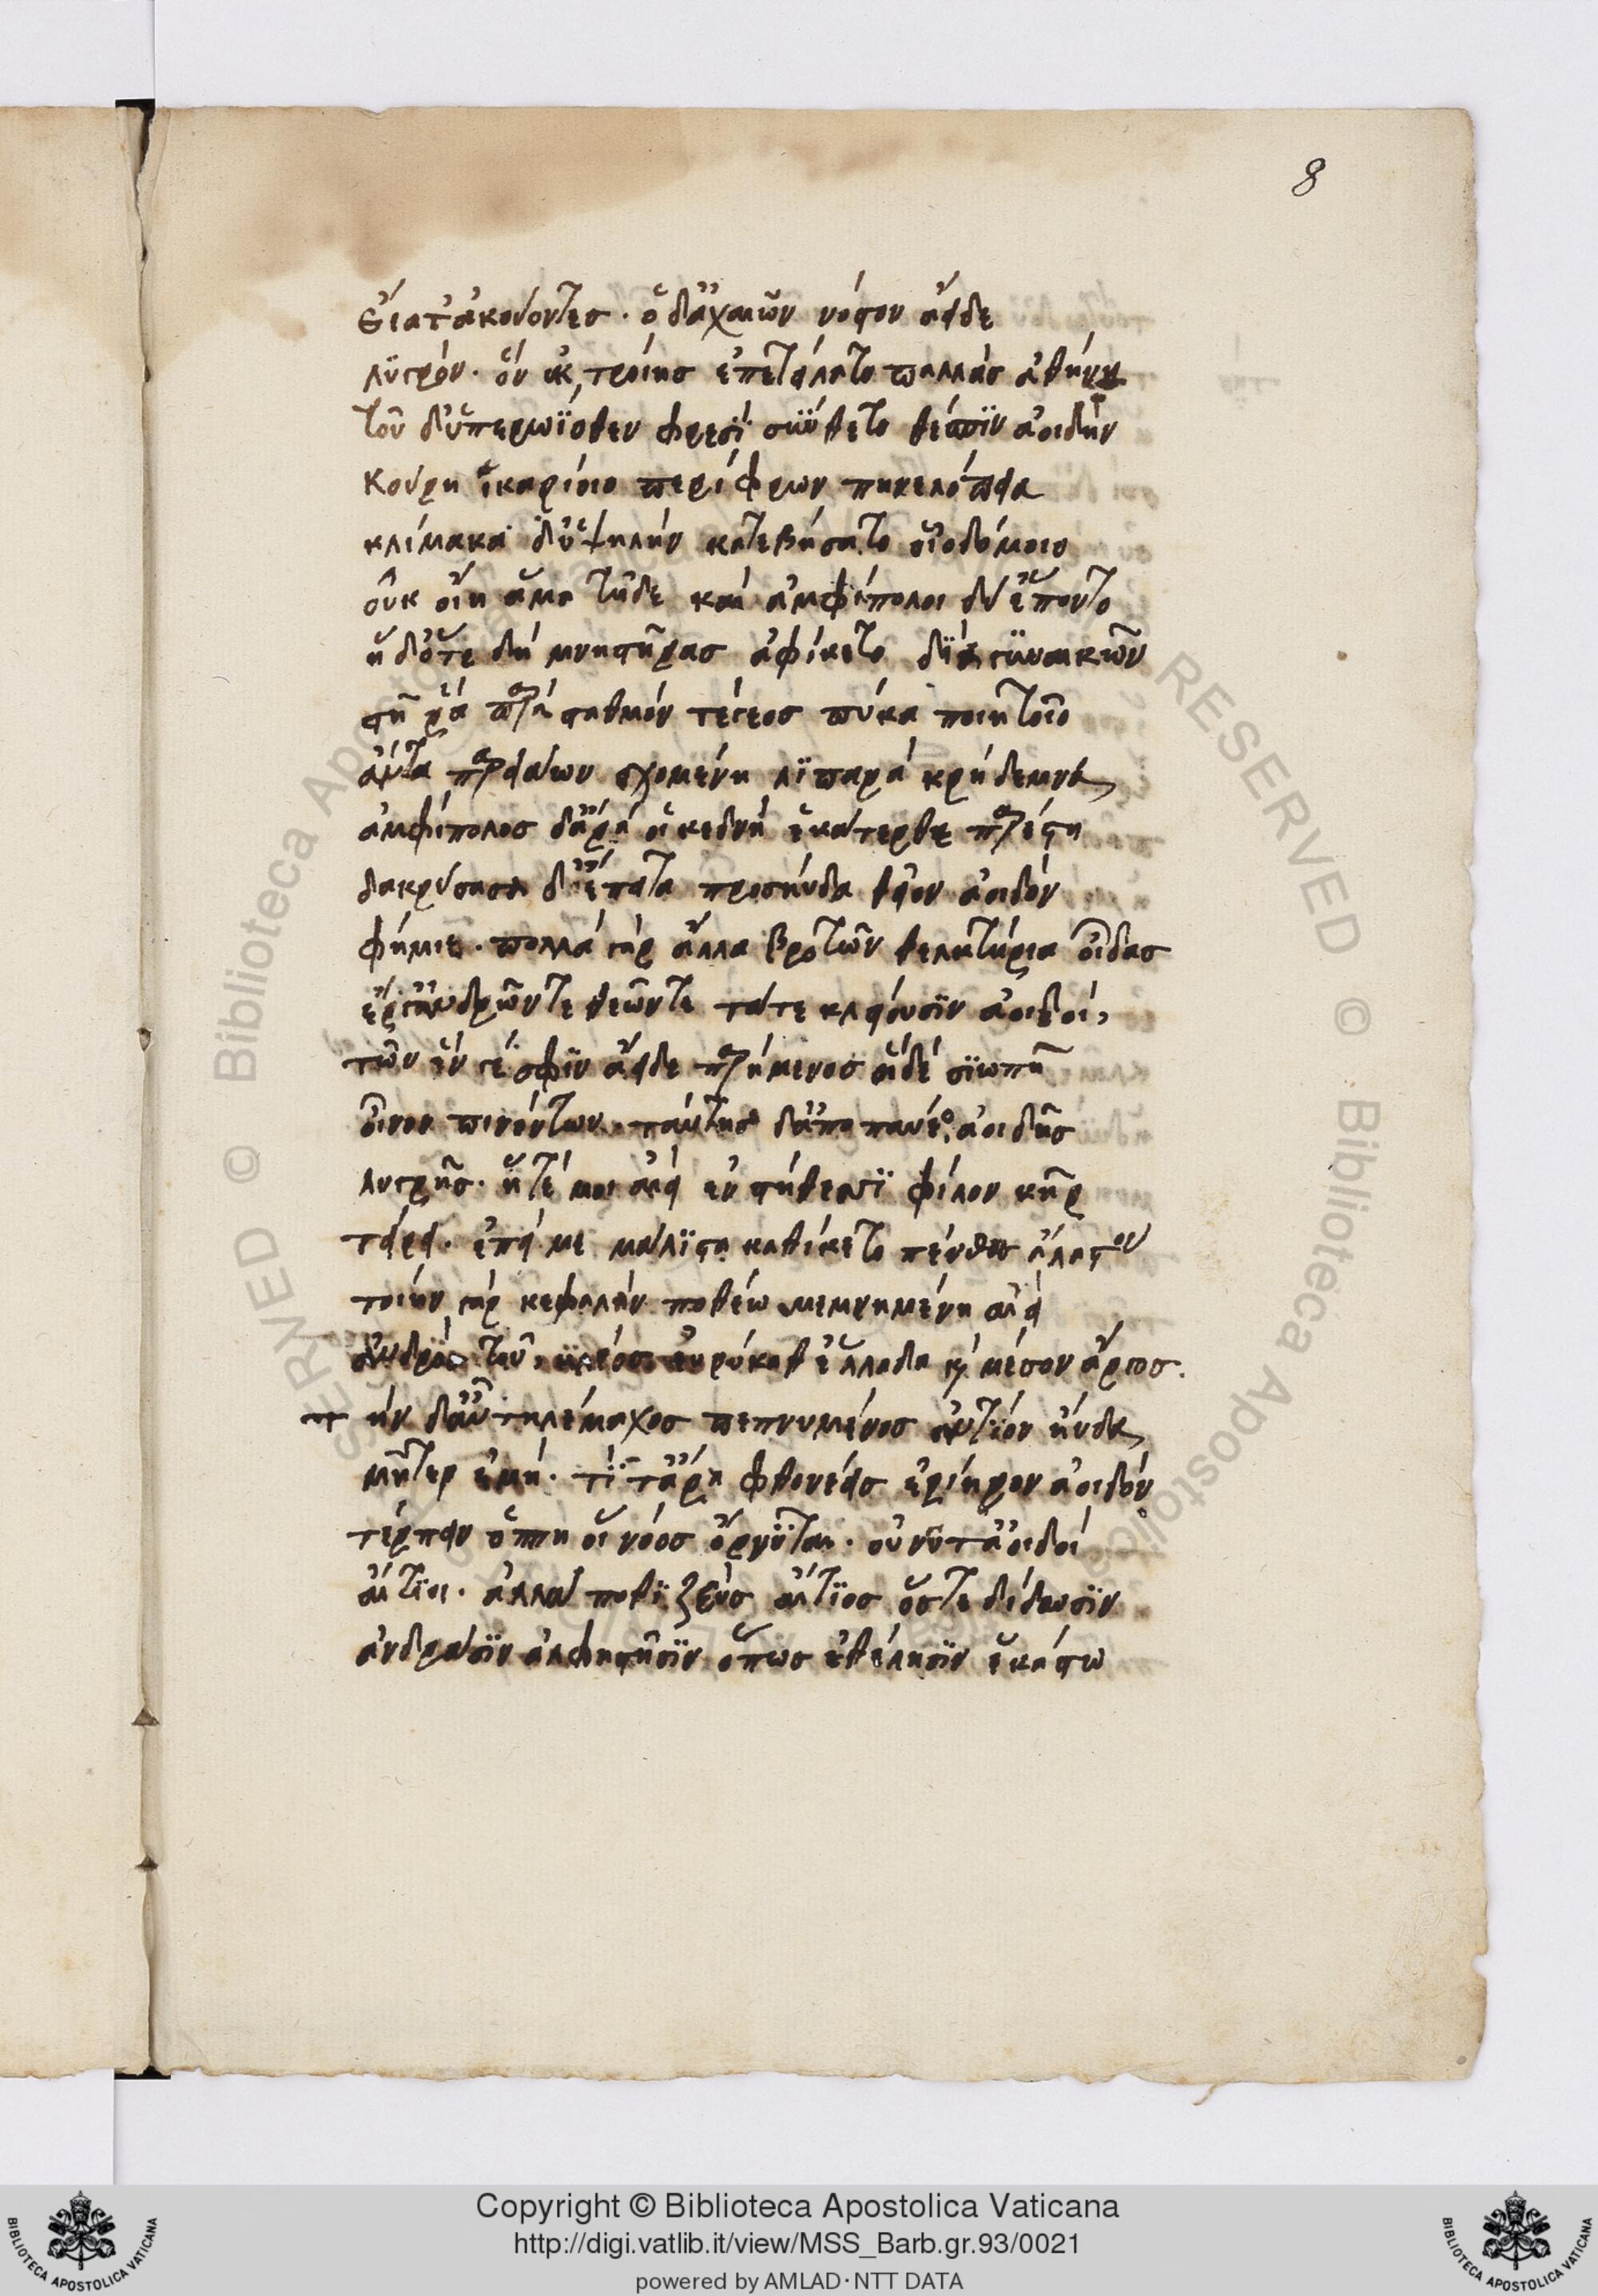 8
εἵατ' ἀκούοντες · ὁ δ' ἀχαιῶν νόστον ἄειδε
λυγρόν · ὃν ἐκ τροίης ἐπετείλατο παλλὰς ἀθήνη
τοῦ δ' ὑπερωϊόθεν φρεσὶ σύνθετο θέσπιν ἀοιδὴν
κούρη ἰκαρίοιο περίφρων πηνελόπεια
κλίμακα δ' ὑψηλὴν κατεβήσατο οἷο δόμοιο
οὐκ οἴη ἅμα τῆδε καὶ ἀμφίπολοι δύ' ἕποντο
ἡ δ' ὅτε δὴ μνηστῆρας ἀφίκετο δῖα γυναικῶν
στῆ ῥα παρὰ σταθμὸν τέγεος πύκα ποιητοῖο
ἄντα παρειάων σχομένη λιπαρὰ κρήδεμνα
ἀμφίπολος δ' ἄρα οἱ κεδνὴ ἑκάτερθε παρέστη
δακρύσασα δ' ἔπειτα προσηύδα θεῖον ἀοιδὸν
φήμιε · πολλὰ γὰρ ἄλλα βροτῶν θελκτήρια οἶδας
ἔργ' ἀνδρῶντε θεῶντε τάτε κλείουσιν ἀοιδοί,
τῶν ἕν γέ σφιν ἄειδε παρήμενος οἱ δὲ σιωπῆ
οἶνον πινόντων · ταύτης δ' ἀποπαύε' ἀοιδῆς
λυγρῆς · ἥτέ μοι αἰεὶ ἐν στήθεσσι φίλον κῆρ
τείρει · ἐπεί με μάλιστα καθίκετο πένθος ἄλαστον
τοίην γὰρ κεφαλὴν ποθέω μεμνημένη αἰεὶ
ἀνδρὸς τοῦ κλέος εὐρὺ καθ' ἑλλάδα καὶ μέσον ἄργος.
τ ὴν δ' αὖ τηλέμαχος πεπνυμένος ἀντίον ηὔδα
μῆτερ ἐμή · τί τ' ἄρα φθονέεις ἐρίηρον ἀοιδὸν
τέρπειν ὅππη οἱ νόος ὄρνυται · οὔ νυ τ' ἀοιδοὶ
αἴτιοι · ἀλλά ποθι ζεὺς αἴτιος ὅστε δίδωσιν
ἀνδράσιν ἀλφηστῆσιν ὅπως ἐθέλησιν ἑκάστω
Copyright © Biblioteca Apostolica Vaticana
http://digi.vatlib.it/view/MSS_Barb.gr.93/0021
powered by AMLAD·NTT DATA